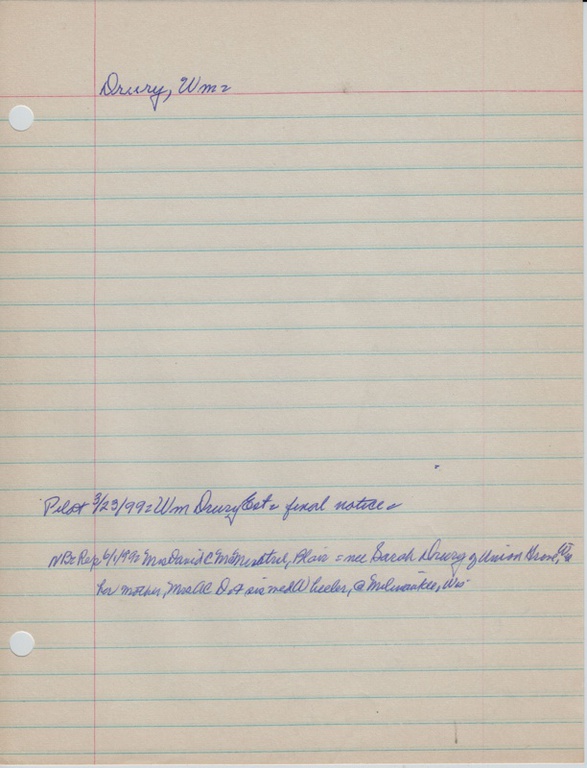 Drury, Wm=
Pilot 3/23/99= Wm Drury Est= final notice=
NBeRep 6/1/99= Mrs David C Blair = nee Sarah Drury of Union Grove,
her mother, Mrs AC D + sis med Wheeler, @ Milwaukee, Wis